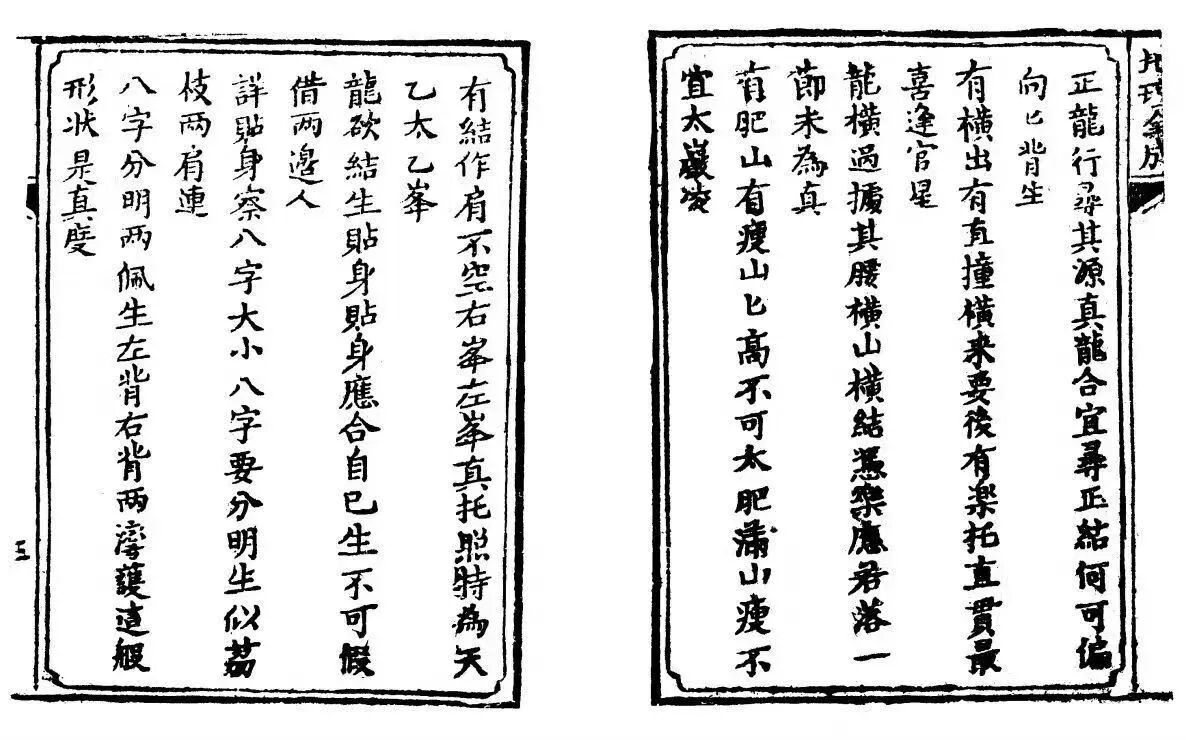 正龍行尋其源真龍合宜尋正结何可偏
向匕背生
有橫出有直撞橫来要後有楽托直貫最
喜逢官星
龍橫過㩀其腰橫山橫結憑楽應若落一
節未為真
有肥山有瘦山匕高不可太肥滿山瘦不
宜太巖
有結作肩不空右峯左峯真托照時為天
乙太乙峯
龍欲結生貼身貼身應合自已生不可假
借两邉人
詳貼身察八字大小八字要分明生似荔
枝两肩連
八字分明两佩生左背右背两護這般
形状是真度
五